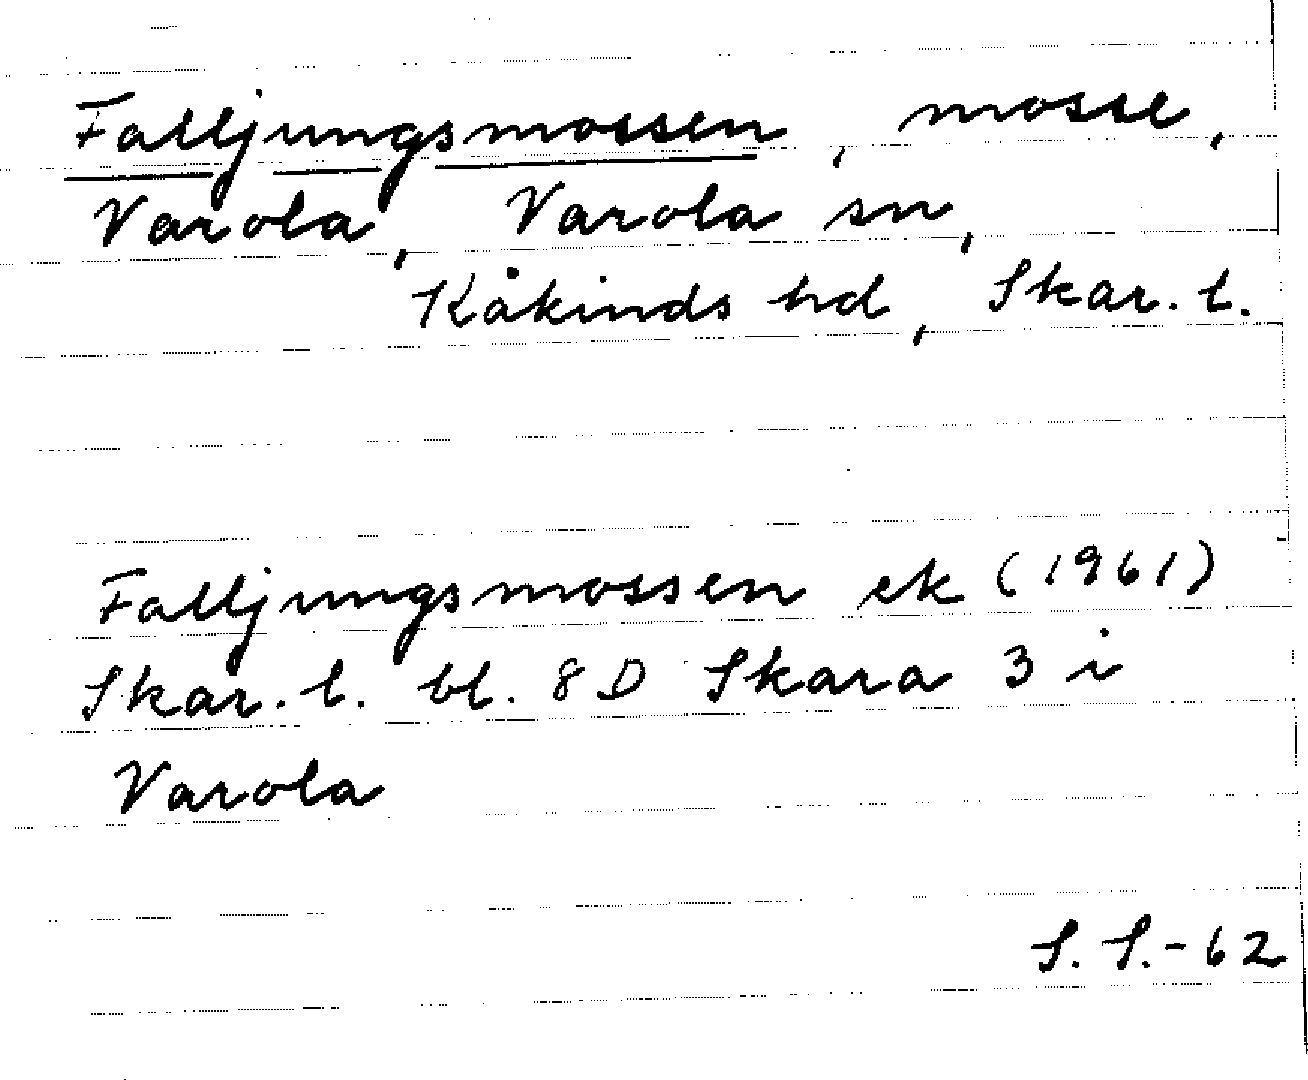 Falljungsmossen, mosse,
Varola, Varola sn,
Kåkinds hd, Skar. l.
Falljungsmossen ek (1961)
Skar. l. bl. 8 D Skara 3 i
Varola
S. S. - 62